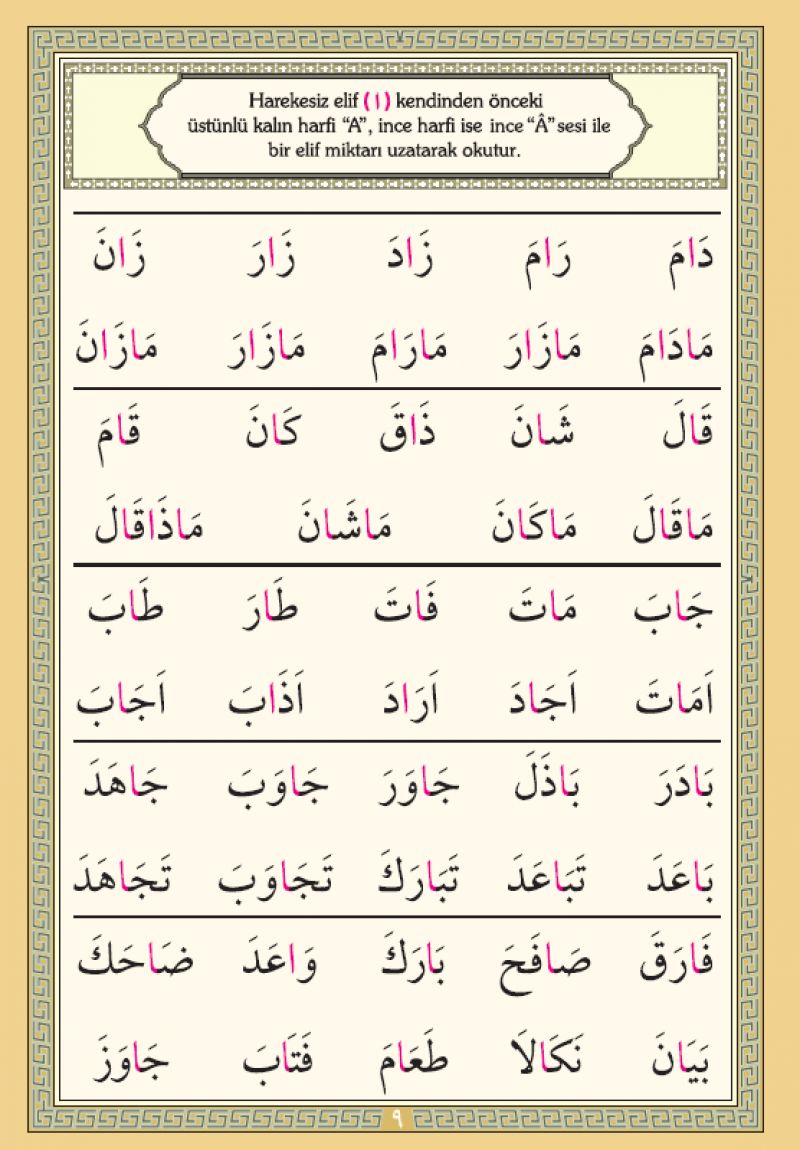 Harekesiz elif ( ا ) kendinden önceki
üstünlü kalın harfi “A”, ince harfi ise ince “Â” sesi ile
bir elif miktarı uzatarak okutur.
دَامَ رَامَ زَادَ زَارَ زَانَ
مَادَامَ مَازَارَ مَارَامَ مَازَارَ مَازَانَ
قَالَ شَانَ ذَاقَ كَانَ قَامَ
مَاقَالَ مَاكَانَ مَاشَانَ مَاذَاقَالَ
جَابَ مَاتَ فَاتَ طَارَ طَابَ
اَمَاتَ اَجَادَ اَرَادَ اَذَابَ اَجَابَ
بَادَرَ بَاذَلَ جَاوَرَ جَاوَبَ جَاهَدَ
بَاعَدَ تَبَاعَدَ تَبَارَكَ تَجَاوَبَ تَجَاهَدَ
فَارَقَ صَافَحَ بَارَكَ وَاعَدَ ضَاحَكَ
بَيَانَ نَكَالَا طَعَامَ فَتَابَ جَاوَزَ
٩